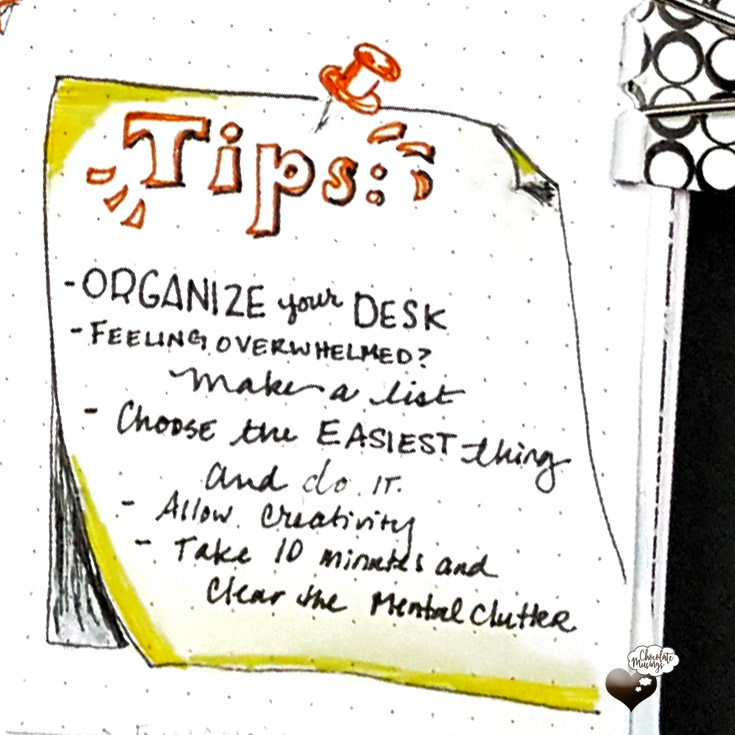 Tips:
- ORGANIZE your DESK
- FEELING OVERWHELMED?
make a list
- CHOOSE the EASIEST thing
and do IT.
- Allow Creativity
- Take 10 minutes and
Clear the Mental Clutter
Chocolate
Musings